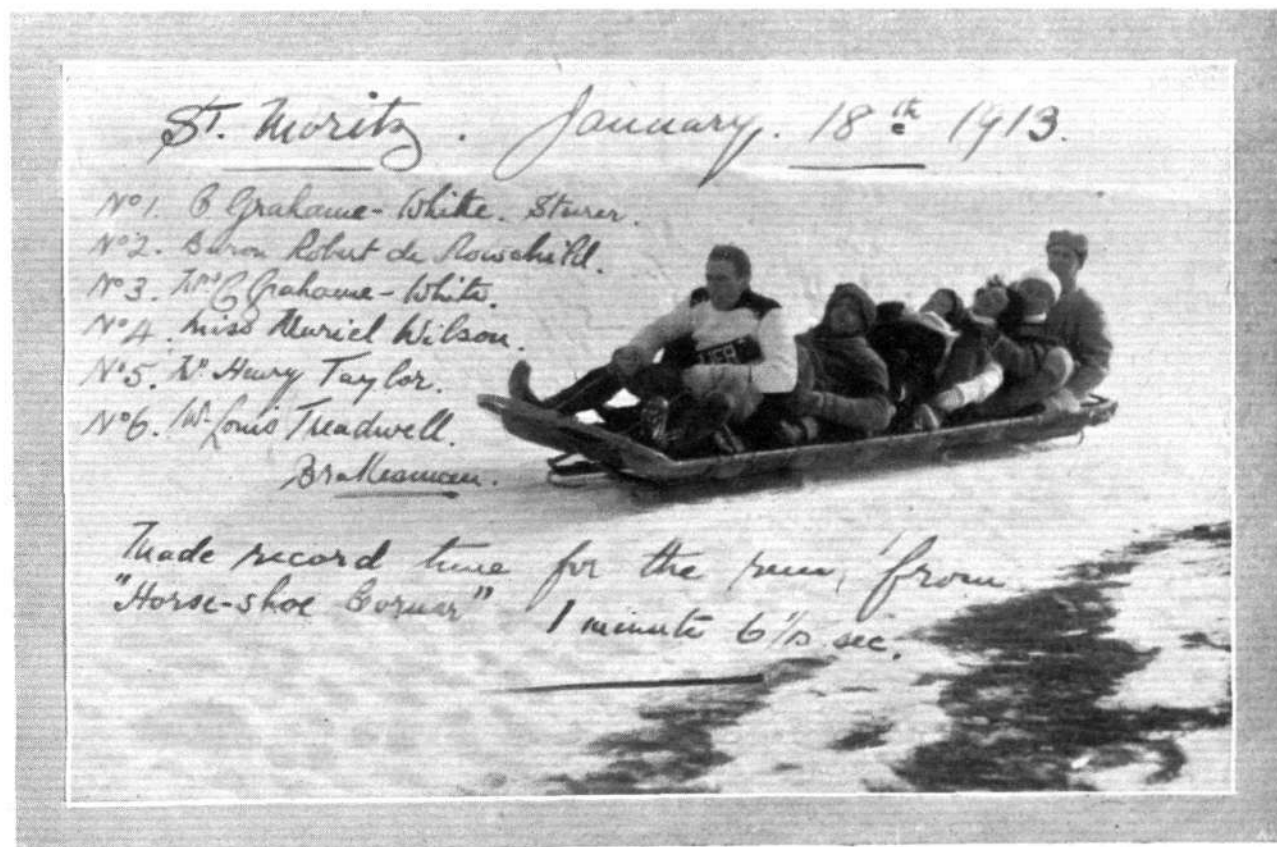 St. Moritz. January. 18th 1913.
No 1. C Grahame-White. Steerer.
No 2. Baron Robert de Rowschild.
No 3. Mrs C Grahame-White.
No 4. Miss Muriel Wilson.
No 5. Mr Henry Taylor.
No 6. Mr Louis Treadwell.
Brakesman.
Made record time for the run, from
"Horse-shoe Corner" 1 minute 6 sec.